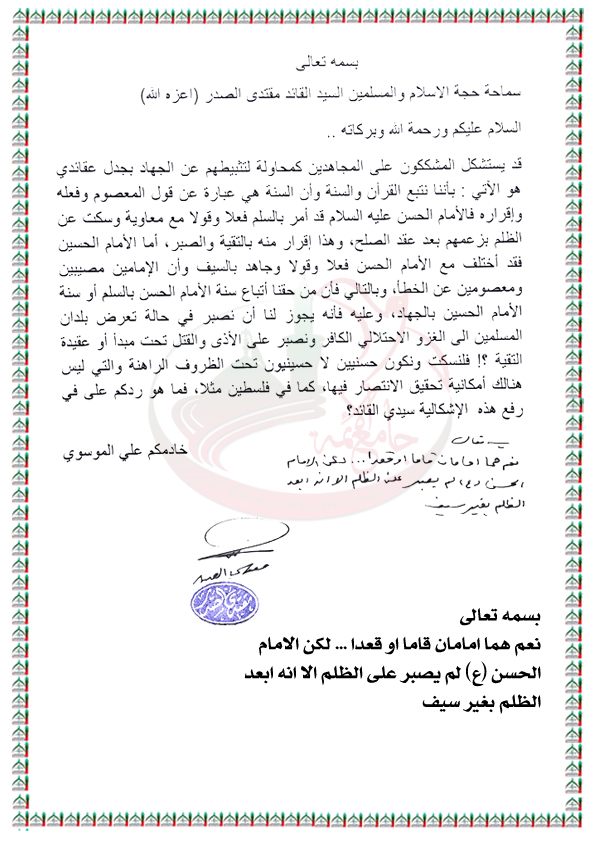 بسمه تعالى
سماحة حجة الاسلام والمسلمين السيد القائد مقتدى الصدر (اعزه الله)
السلام عليكم ورحمة الله وبركاته ..
قد يستشكل المشككون على المجاهدين كمحاولة لتثبيطهم عن الجهاد بجدل عقائدي
هو الأتي : بأننا نتبع القرآن والسنة وأن السنة هي عبارة عن قول المعصوم وفعله
وإقراره فالأمام الحسن عليه السلام قد أمر بالسلم فعلا وقولا مع معاوية وسكت عن
الظلم بزعمهم بعد عقد الصلح، وهذا إقرار منه بالتقية والصبر، أما الأمام الحسين
فقد أختلف مع الأمام الحسن فعلا وقولا وجاهد بالسيف وأن الإمامين مصيبين
ومعصومين عن الخطأ، وبالتالي فأن من حقنا أتباع سنة الأمام الحسن بالسلم أو سنة
الأمام الحسين بالجهاد، وعليه فأنه يجوز لنا أن نصبر في حالة تعرض بلدان
المسلمين الى الغزو الاحتلالي الكافر ونصبر على الأذى والقتل تحت مبدأ أو عقيدة
التقية ؟! فلنسكت ونكون حسنيين لا حسينيون تحت الظروف الراهنة والتي ليس
هنالك أمكانية تحقيق الانتصار فيها، كما في فلسطين مثلا، فما هو ردكم على في
رفع هذه الإشكالية سيدي القائد؟
خادمكم علي الموسوي
بسمه تعالى
نعم هما امامان قاما او قعدا ... لكن الامام
الحسن (ع) لم يصبر على الظلم الا انه ابعد
الظلم بغير سيف
مقتدى الصدر
جامعة
بسمه تعالى
نعم هما امامان قاما او قعدا ... لكن الامام
الحسن (ع) لم يصبر على الظلم الا انه ابعد
الظلم بغير سيف